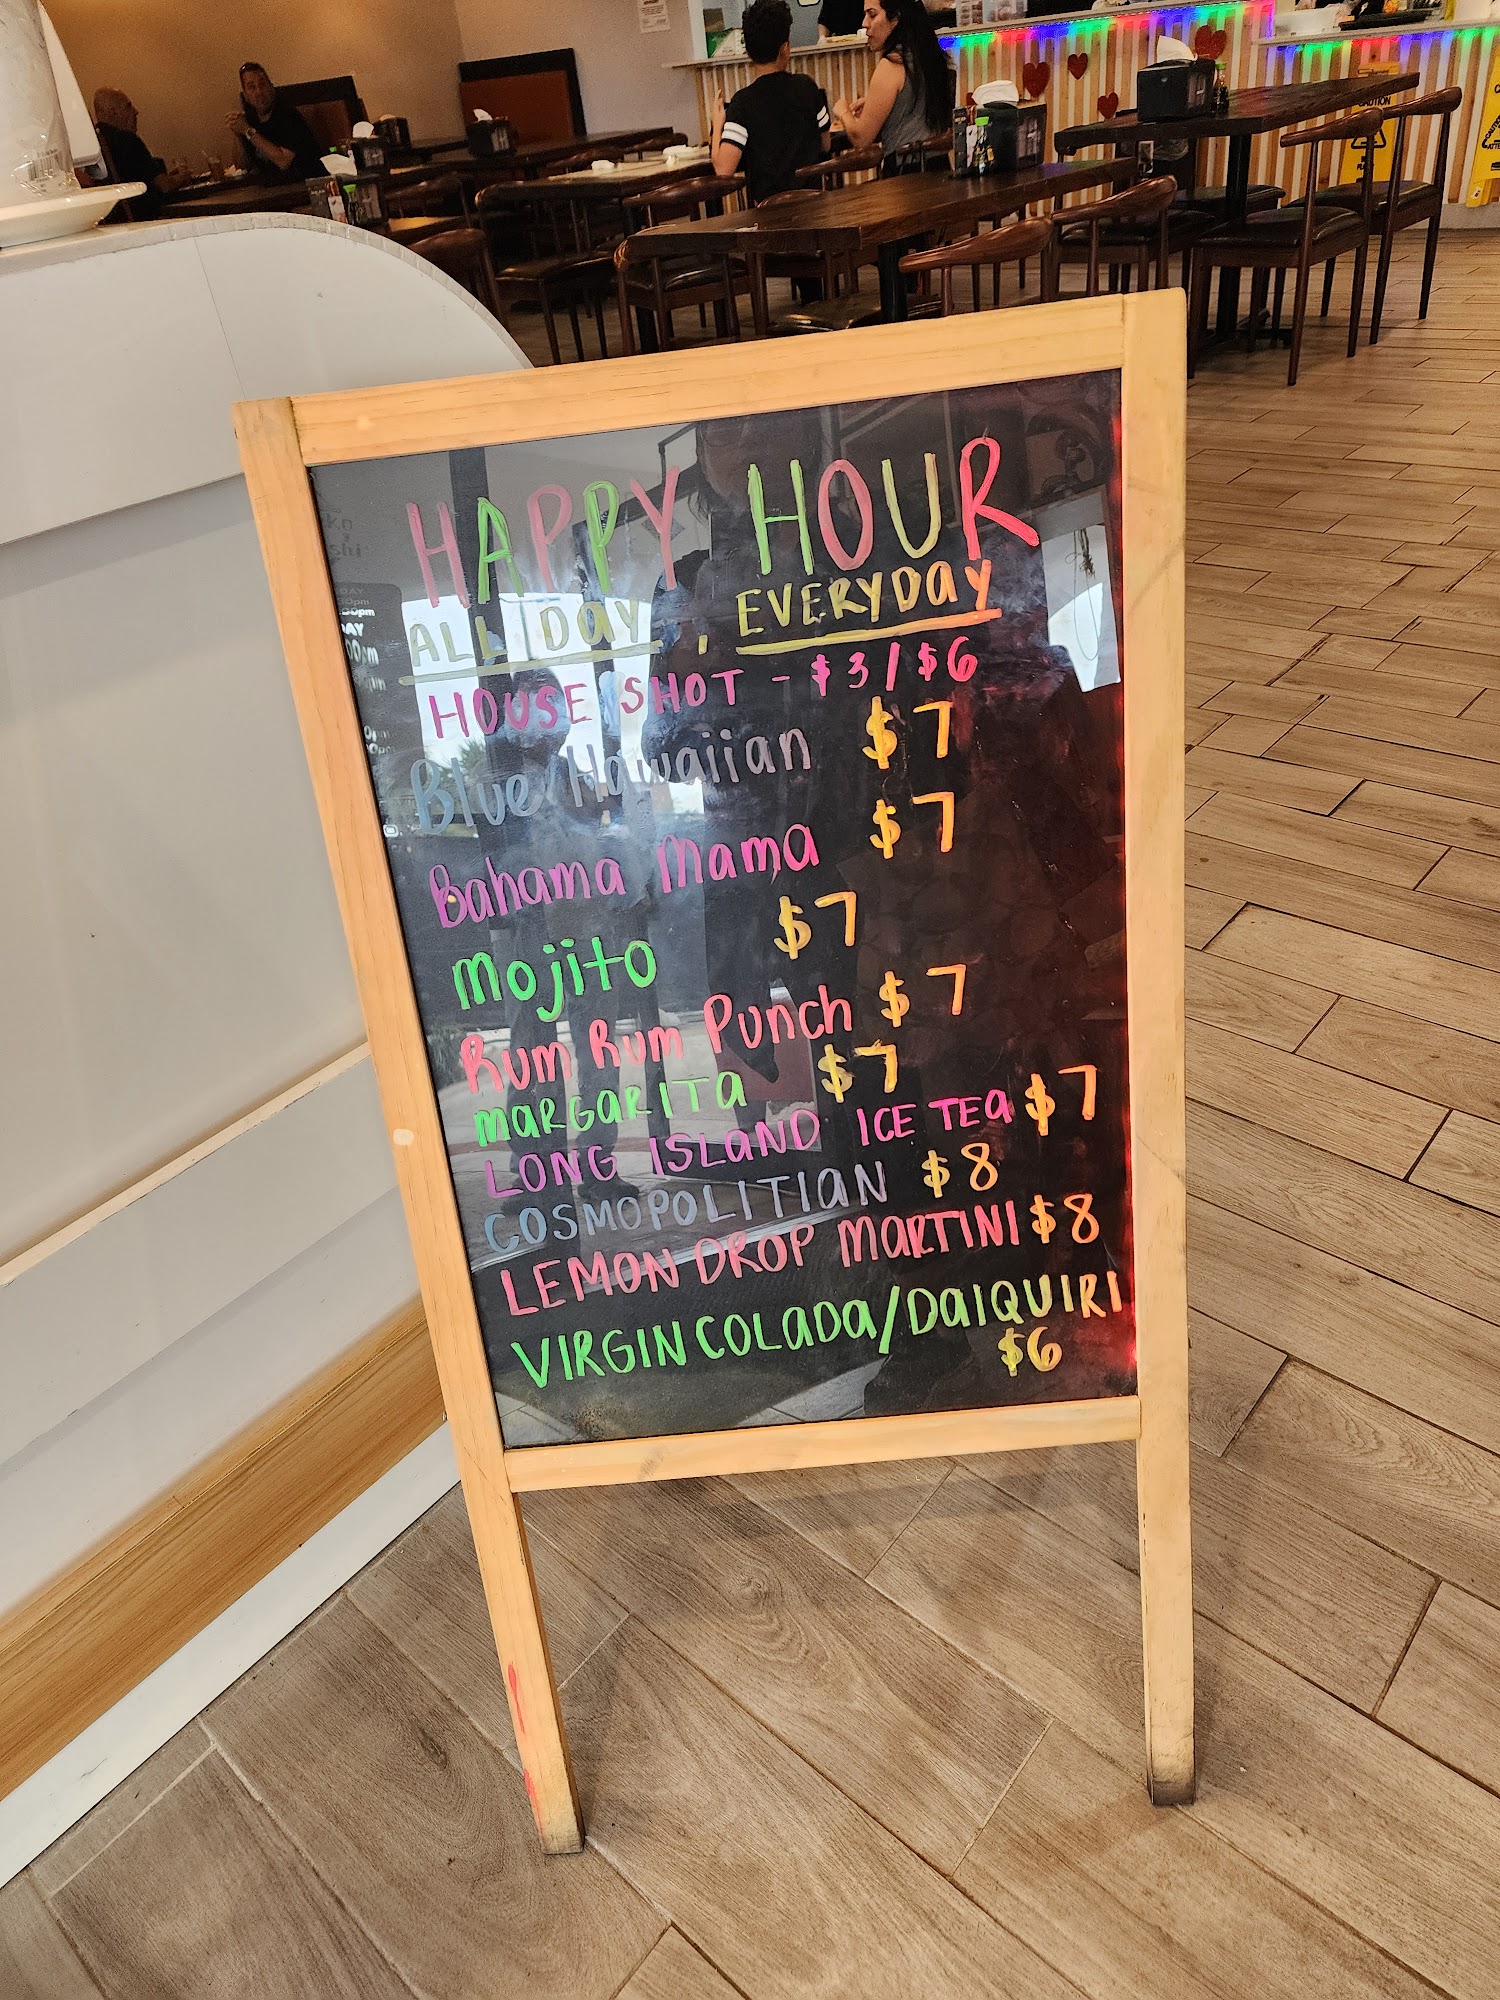 HAPPY HOUR
ALL DAY, EVERYDAY
HOUSE SHOT - $3/$6
Blue Hawaiian $7
Bahama Mama $7
Mojito $7
Rum Rum Punch $7
MARGARITA $7
LONG ISLAND ICE TEA $7
COSMOPOLITIAN $8
LEMON DROP MARTINI $8
VIRGIN COLADA/DAIQUIRI
$6
CAUTION